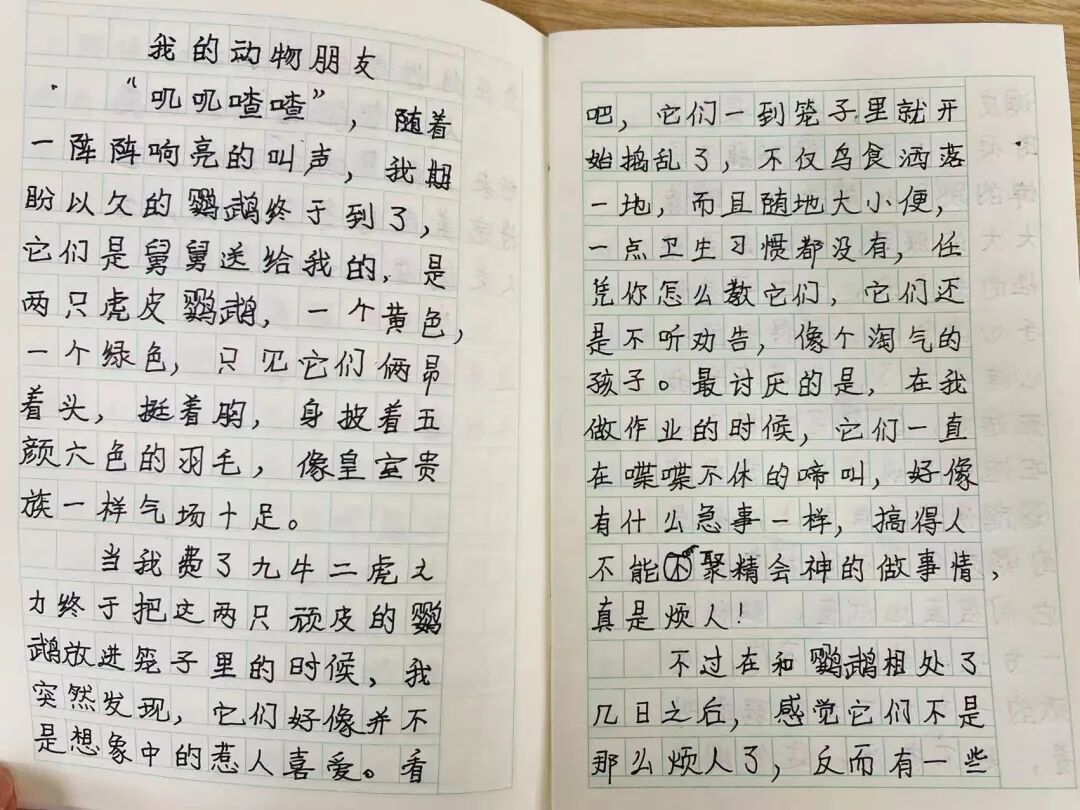 我的动物朋友
“叽叽喳喳”，随着
一阵阵响亮的叫声，我期
盼以久的鹦鹉终于到了，
它们是舅舅送给我的，是
两只虎皮鹦鹉，一个黄色，
一个绿色，只见它们俩昂
着头，挺着胸，身披着五
颜六色的羽毛，像皇室贵
族一样气场十足。
当我费了九牛二虎之
力终于把这两只顽皮的鹦
鹉放进笼子里的时候，我
突然发现，它们好像并不
是想象中的惹人喜爱。看
吧，它们一到笼子里就开
始捣乱了，不仅鸟食洒落
一地，而且随地大小便，
一点卫生习惯都没有，任
凭你怎么教它们，它们还
是不听劝告，像个淘气的
孩子。最讨厌的是，在我
做作业的时候，它们一直
在喋喋不休的啼叫，好像
有什么急事一样，搞得人
不能聚精会神的做事情，
真是烦人！
不过在和鹦鹉相处了
几日之后，感觉它们不是
那么烦人了，反而有一些